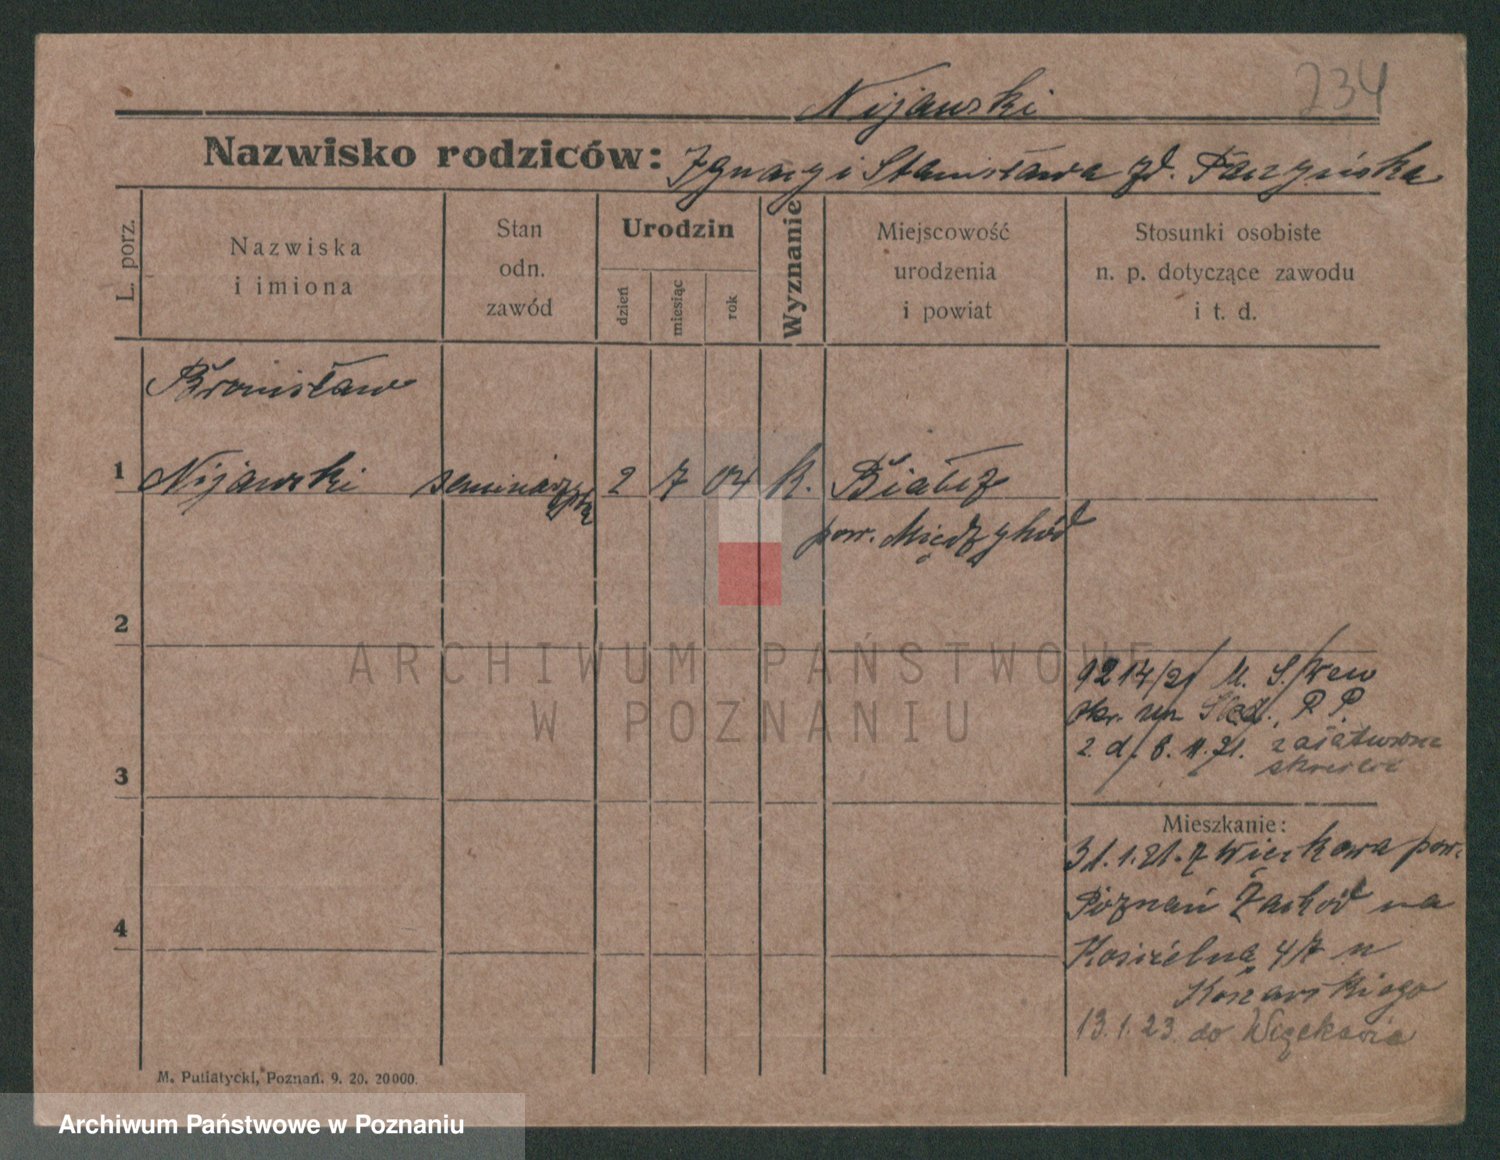 Nijawski 234
Nazwisko rodziców: Ignacy i Stanisława zd. Faczyńska
L. porz.
Nazwiska
i imiona
Stan
odn.
zawód
Urodzin
dzień
miesiąc
rok
Wyznanie
Miejscowość
urodzenia
i powiat
Stosunki osobiste
n. p. dotyczące zawodu
i t. d.
Bronisław
1 Nijawski seminarzysta 2 7 04 K. Białcz
pow. Międzychód
2
9214/21 M. S. Wew
Okr. Śled. P. P.
2. d. 8. 11. 21. załatwione
3
Mieszkanie:
31. 1. 21. z pow.
4
Poznań Zachód na
Kościelna 47 u
Koszarskiego
13. 1. 23. do
M. Putiatycki, Poznań. 9. 20. 20000.
ARCHIWUM PAŃSTWOWE
W POZNANIU
Archiwum Państwowe w Poznaniu